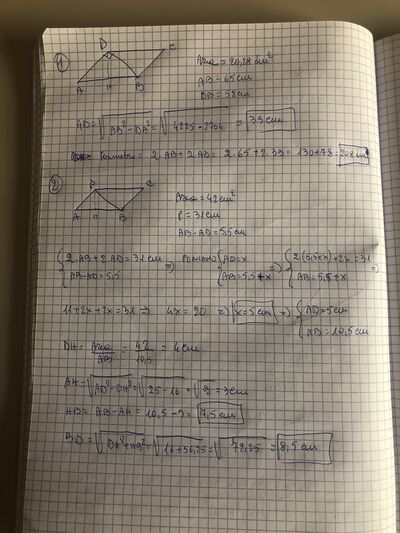 1)
D C
A H B
Area = 20,28 dm²
AB = 65 cm
DB = 52 cm
AD = √AB² - DB² = √4225 - 2704 = 39 cm
Perimetro = 2·AB + 2·AD = 2·65 + 2·39 = 130 + 78 = 208 cm
2)
D C
A H B
Area = 42 cm²
P = 31 cm
AB - AD = 5,5 cm
{ 2·AB + 2·AD = 31 cm ⇒ PONIAMO { AD = x ⇒ { 2(5,5+x) + 2x = 31 ⇒
AB - AD = 5,5 AB = 5,5 + x AB = 5,5 + x
11 + 2x + 2x = 31 ⇒ 4x = 20 ⇒ x = 5 cm ⇒ { AD = 5 cm
AB = 10,5 cm
DH = Area/AB = 42/10,5 = 4 cm
AH = √AD² - DH² = √25 - 16 = √9 = 3 cm
HB = AB - AH = 10,5 - 3 = 7,5 cm
BD = √DH² + HB² = √16 + 56,25 = √72,25 = 8,5 cm